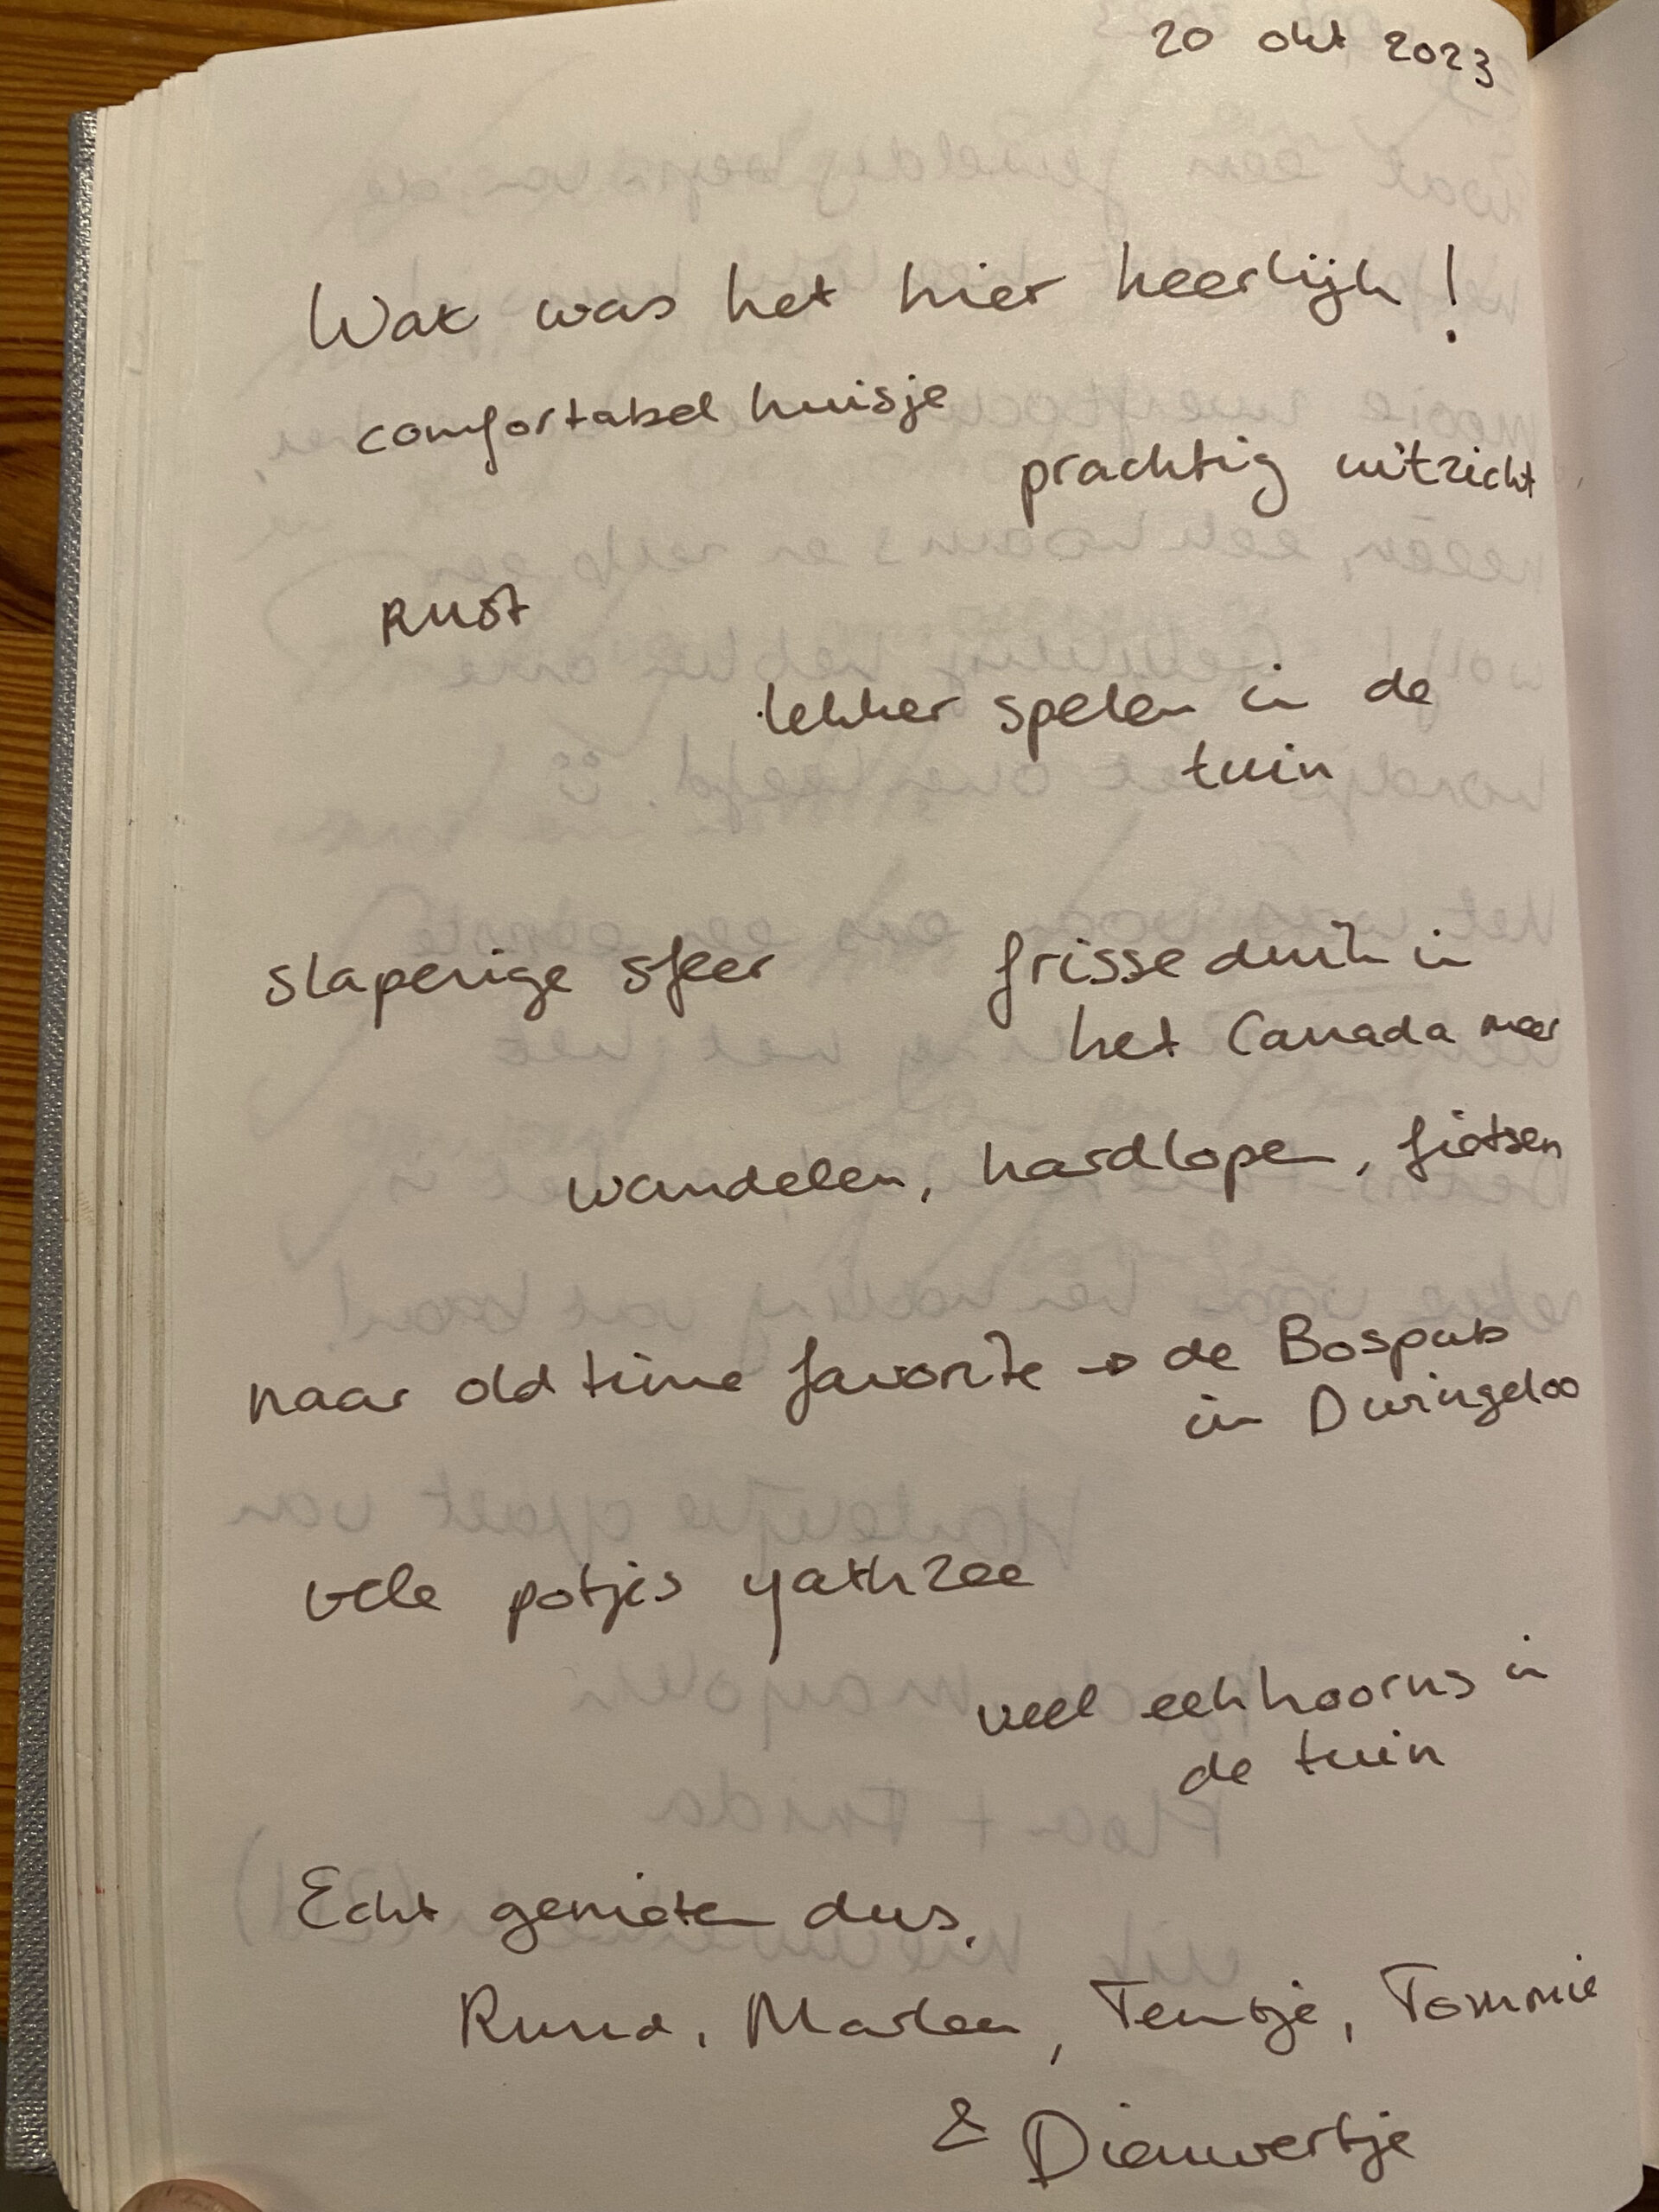 20 okt 2023
Wat was het hier heerlijk!
comfortabel huisje
prachtig uitzicht
RUST
lekker spelen in de
tuin
slaperige sfeer
frisse duik in
het Canada meer
wandelen, hardlopen, fietsen
naar old time favorite → de Bospub
in Dwingeloo
vele potjes yathzee
veel eekhoorns in
de tuin
Echt genieten dus,
Ruud, Marlen, Tentje, Tommie
& Dieuwertje